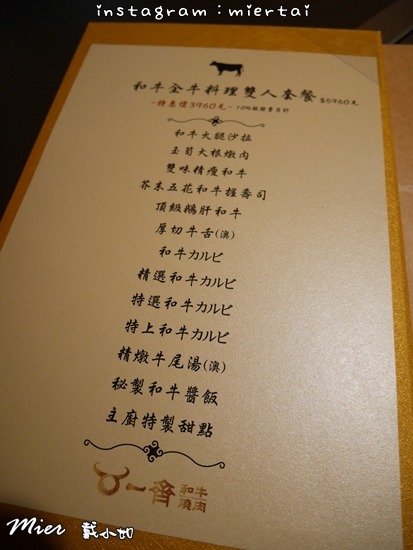 instagram：miertai
和牛全牛料理雙人套餐 $5960元
~特惠價3960元~ 10%服務費另計
和牛大腿沙拉
玉筍大根燉肉
雙味精瘦和牛
芥末五花和牛握壽司
頂級鵝肝和牛
厚切牛舌(澳)
和牛カルビ
精選和牛カルビ
特選和牛カルビ
特上和牛カルビ
精燉牛尾湯(澳)
秘製和牛醬飯
主廚特製甜點
一齊 和牛燒肉
Mier 戴小如